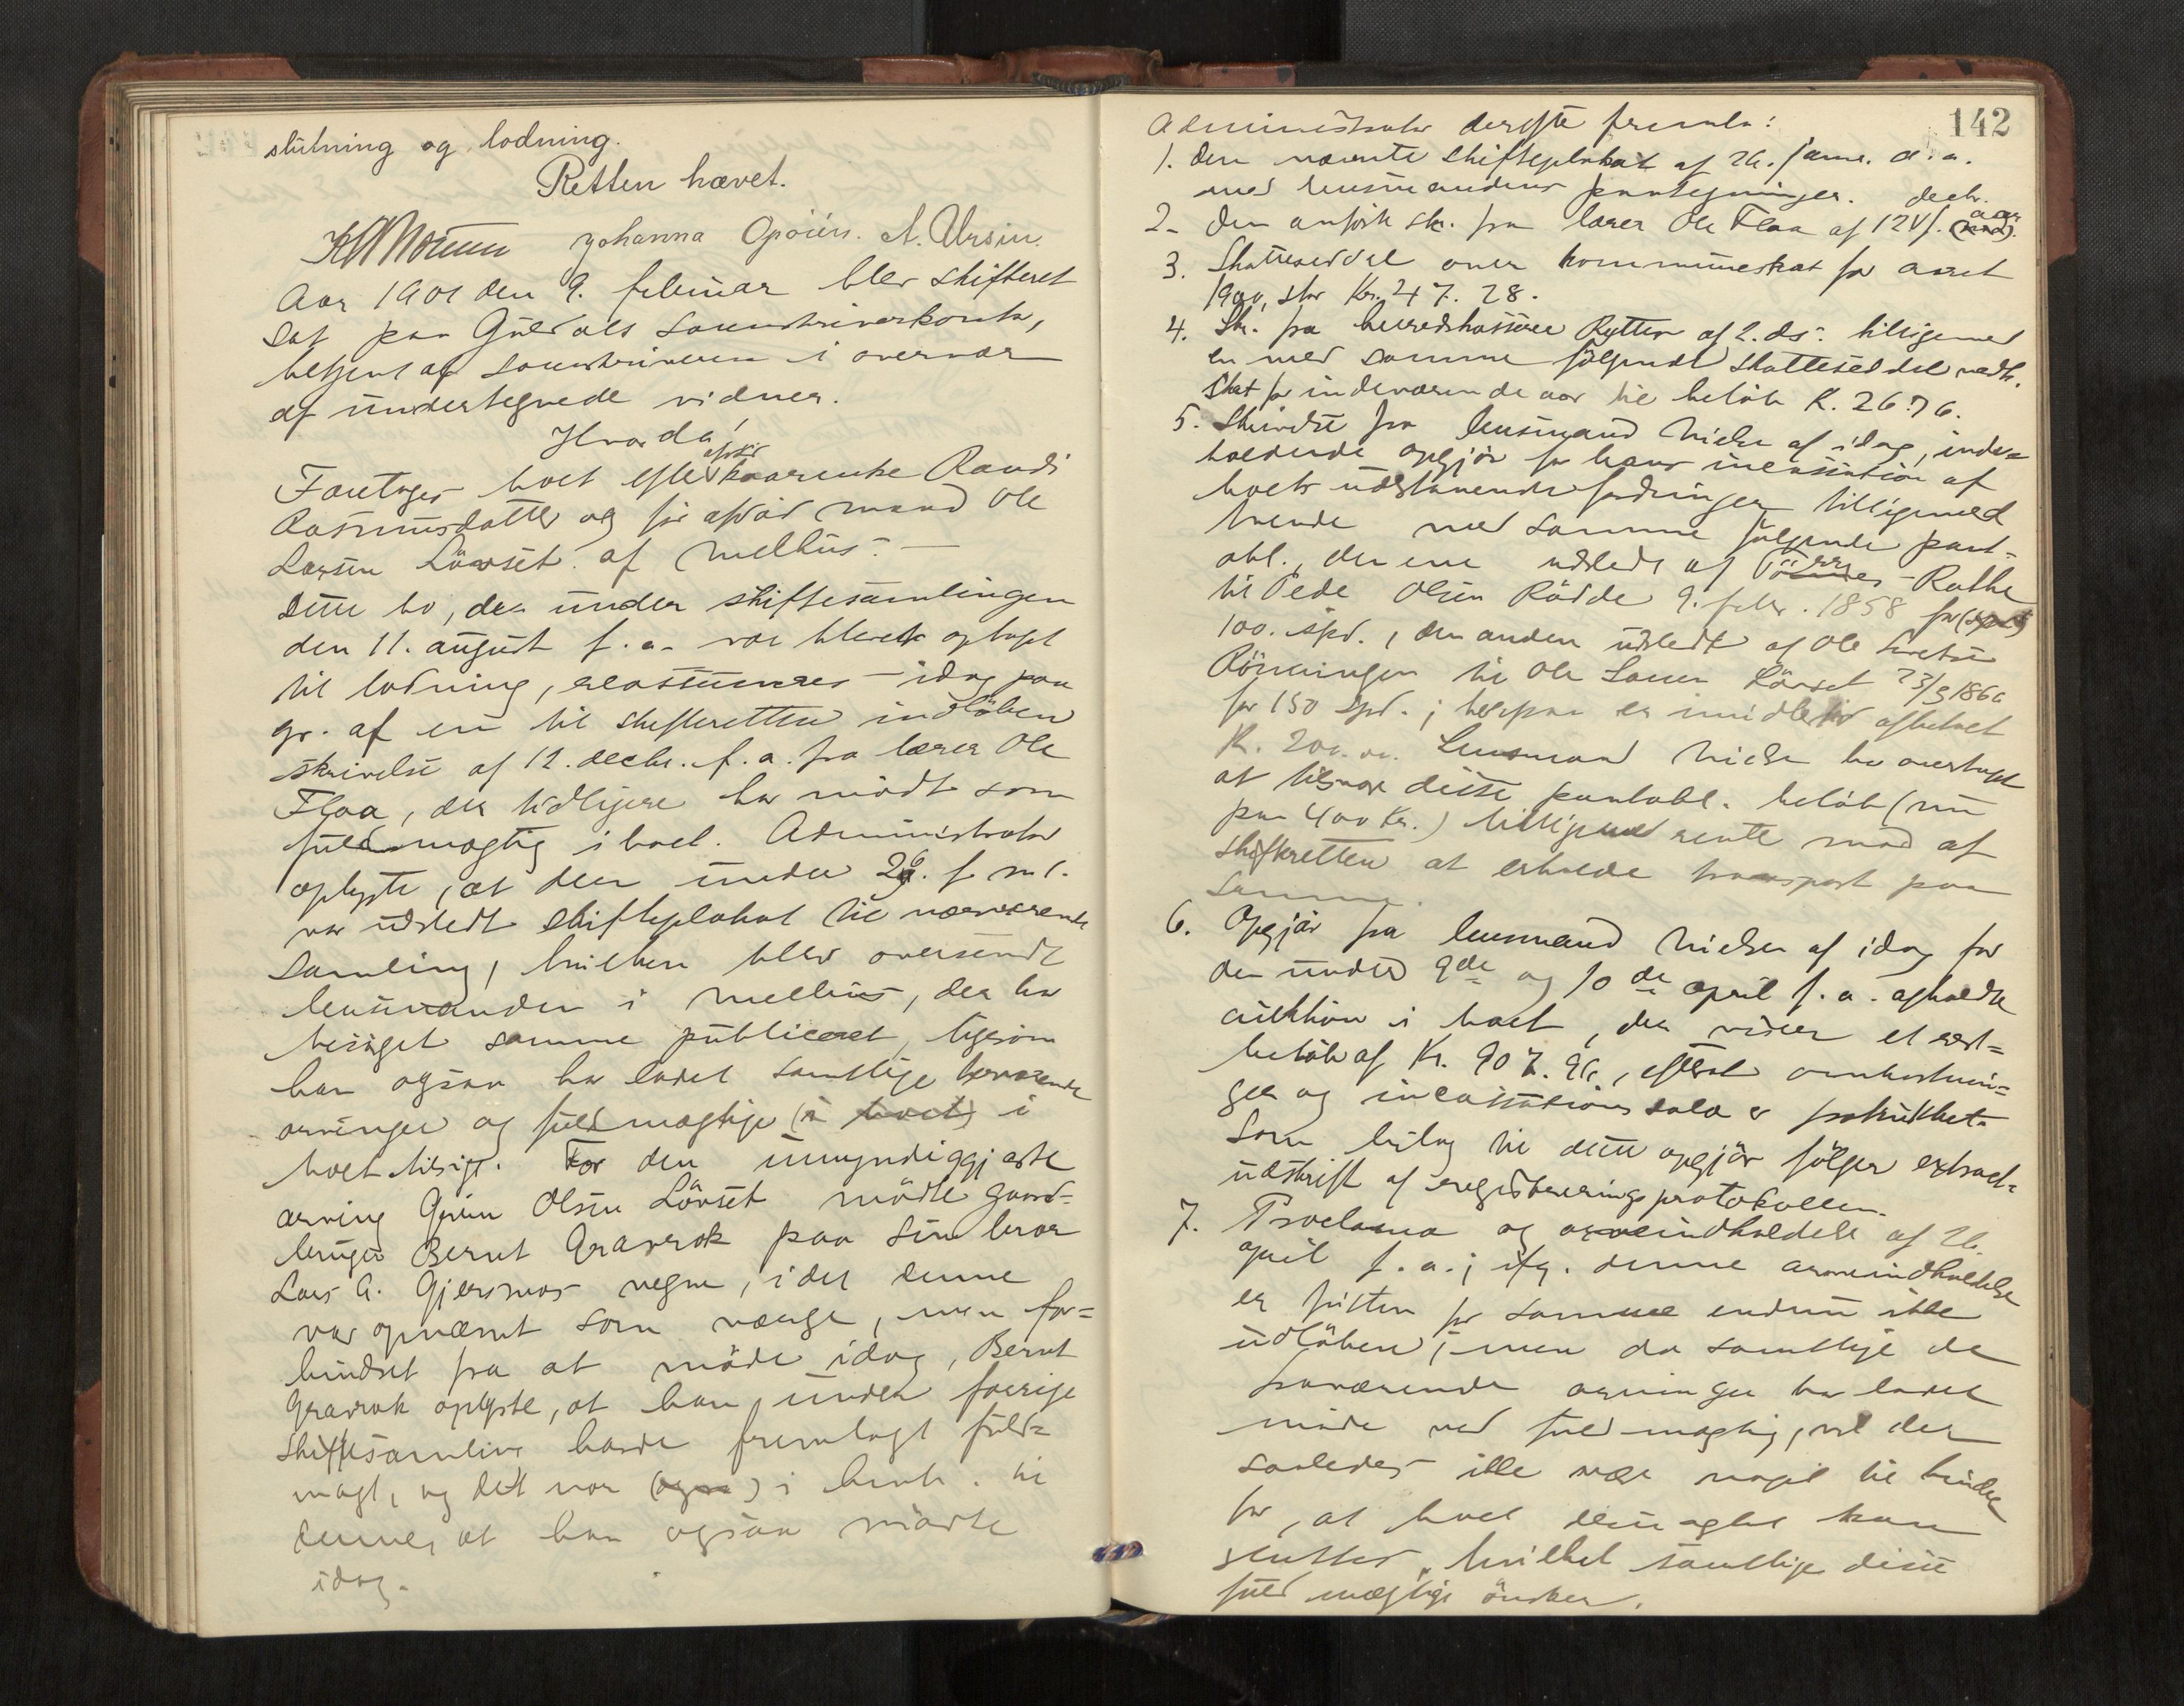 slutning og lodning.
Retten hævet.
Johanna Opöien. A. Ursin.
Aar 1901 den 9. februar blev skifteret
sat paa Guldals sorenskriverkontor,
betjent af sorenskriveren i overvær
af undertegnede vidner.
Hvorda!
afdöd
Foretages boet efter kaarenke Randi
Rasmusdatter og för afdöd mand Ole
Larsen Lövset af Melhus. —
Dette bo, der under skiftesamlingen
den 11. august f. a. var blevet optaget
til lodning, reassumeres idag paa
gr. af en til skifteretten indlöben
skrivelse af 12. decbr. f. a. fra lærer Ole
Flaa, der tidligere har mödt som
fuldmægtig i boet. Administrator
oplyste, at der under 26. f. m.
var udstedt skifteplakat til nærværende
samling, hvilken blev oversendt
lensmanden i Melhus, der har
besörget samme publiceret, ligesom
han ogsaa har ladet samtlige herværende
arvinger og fuldmægtige (i boet) i
boet tilsige. For den umyndiggjorte
arving Olsen Lövset mödte gaard-
bruger Bernt Gravrok paa sin bror
Lars G. Gjersmos vegne, idet denne
var opnævnt som værge, men for-
hindret fra at möde idag, Bernt
Gravrok oplyste, at han under forrige
skiftesamling havde fremlagt fuld-
magt, og det var (ogsaa) i henh. til
denne, at han ogsaa mödte
idag.
142
Administrator derefter fremla:
1. den nævnte skifteplakat af 26. jan. d. a.
med lensmandens paategninger. decbr.
2. den anförte skr. fra lærer Ole Flaa af 12 f. a.
3. Skatteseddel over kommuneskat for aaret
1900, stor Kr. 47. 28.
4. Skr. fra herredskasserer Rytter af 2. ds. tilligemed
en med samme fölgende skatteseddel vedk.
skat for indeværende aar til belöb K. 26.76.
5. Skrivelse fra lensmand Nielsen af idag, inde-
holdende opgjör for hans incassation af
boets udestaaende fordringer tilligemed
tvende med samme fölgende pant-
obl., den ene udstedt af Rathe
til Peder Olsen Rödde 9. febr. 1858 for
100. spd., den anden udstedt af Ole
Rönningen til Ole Larsen Lövset 23/3 1860
for 150 spd.; herpaa er imidlertid afbetalt
K. 200.00. Lensmand Nielsen har overtaget
at tilsvare disse pantobl. belöb (nu
paa 400 Kr.) tilligemed rente mod af
skifteretten at erholde transport paa
samme.
6. Opgjör fra lensmand Nielsen af idag for
den under 9de og 10de april f. a. afholdte
auktion i boet, der viser et rest-
belöb af Kr. 907. 96, efterat omkostnin-
ger og incassationssalær er fratrukket.
Som bilag til dette opgjör fölger extract-
udskrift af registreringsprotokollen.
7. Proclama og arveindkaldelse af 26.
april f. a.; ifg. denne arveindkaldelse
er fristen for samme endnu ikke
udlöben, men da samtlige de
fraværende arvinger har ladet
möde ved fuldmægtig, vil der
saaledes ikke være noget til hinder
for, at boet desuagtet kan
sluttes, hvilket samtlige disse
fuldmægtige önsker.